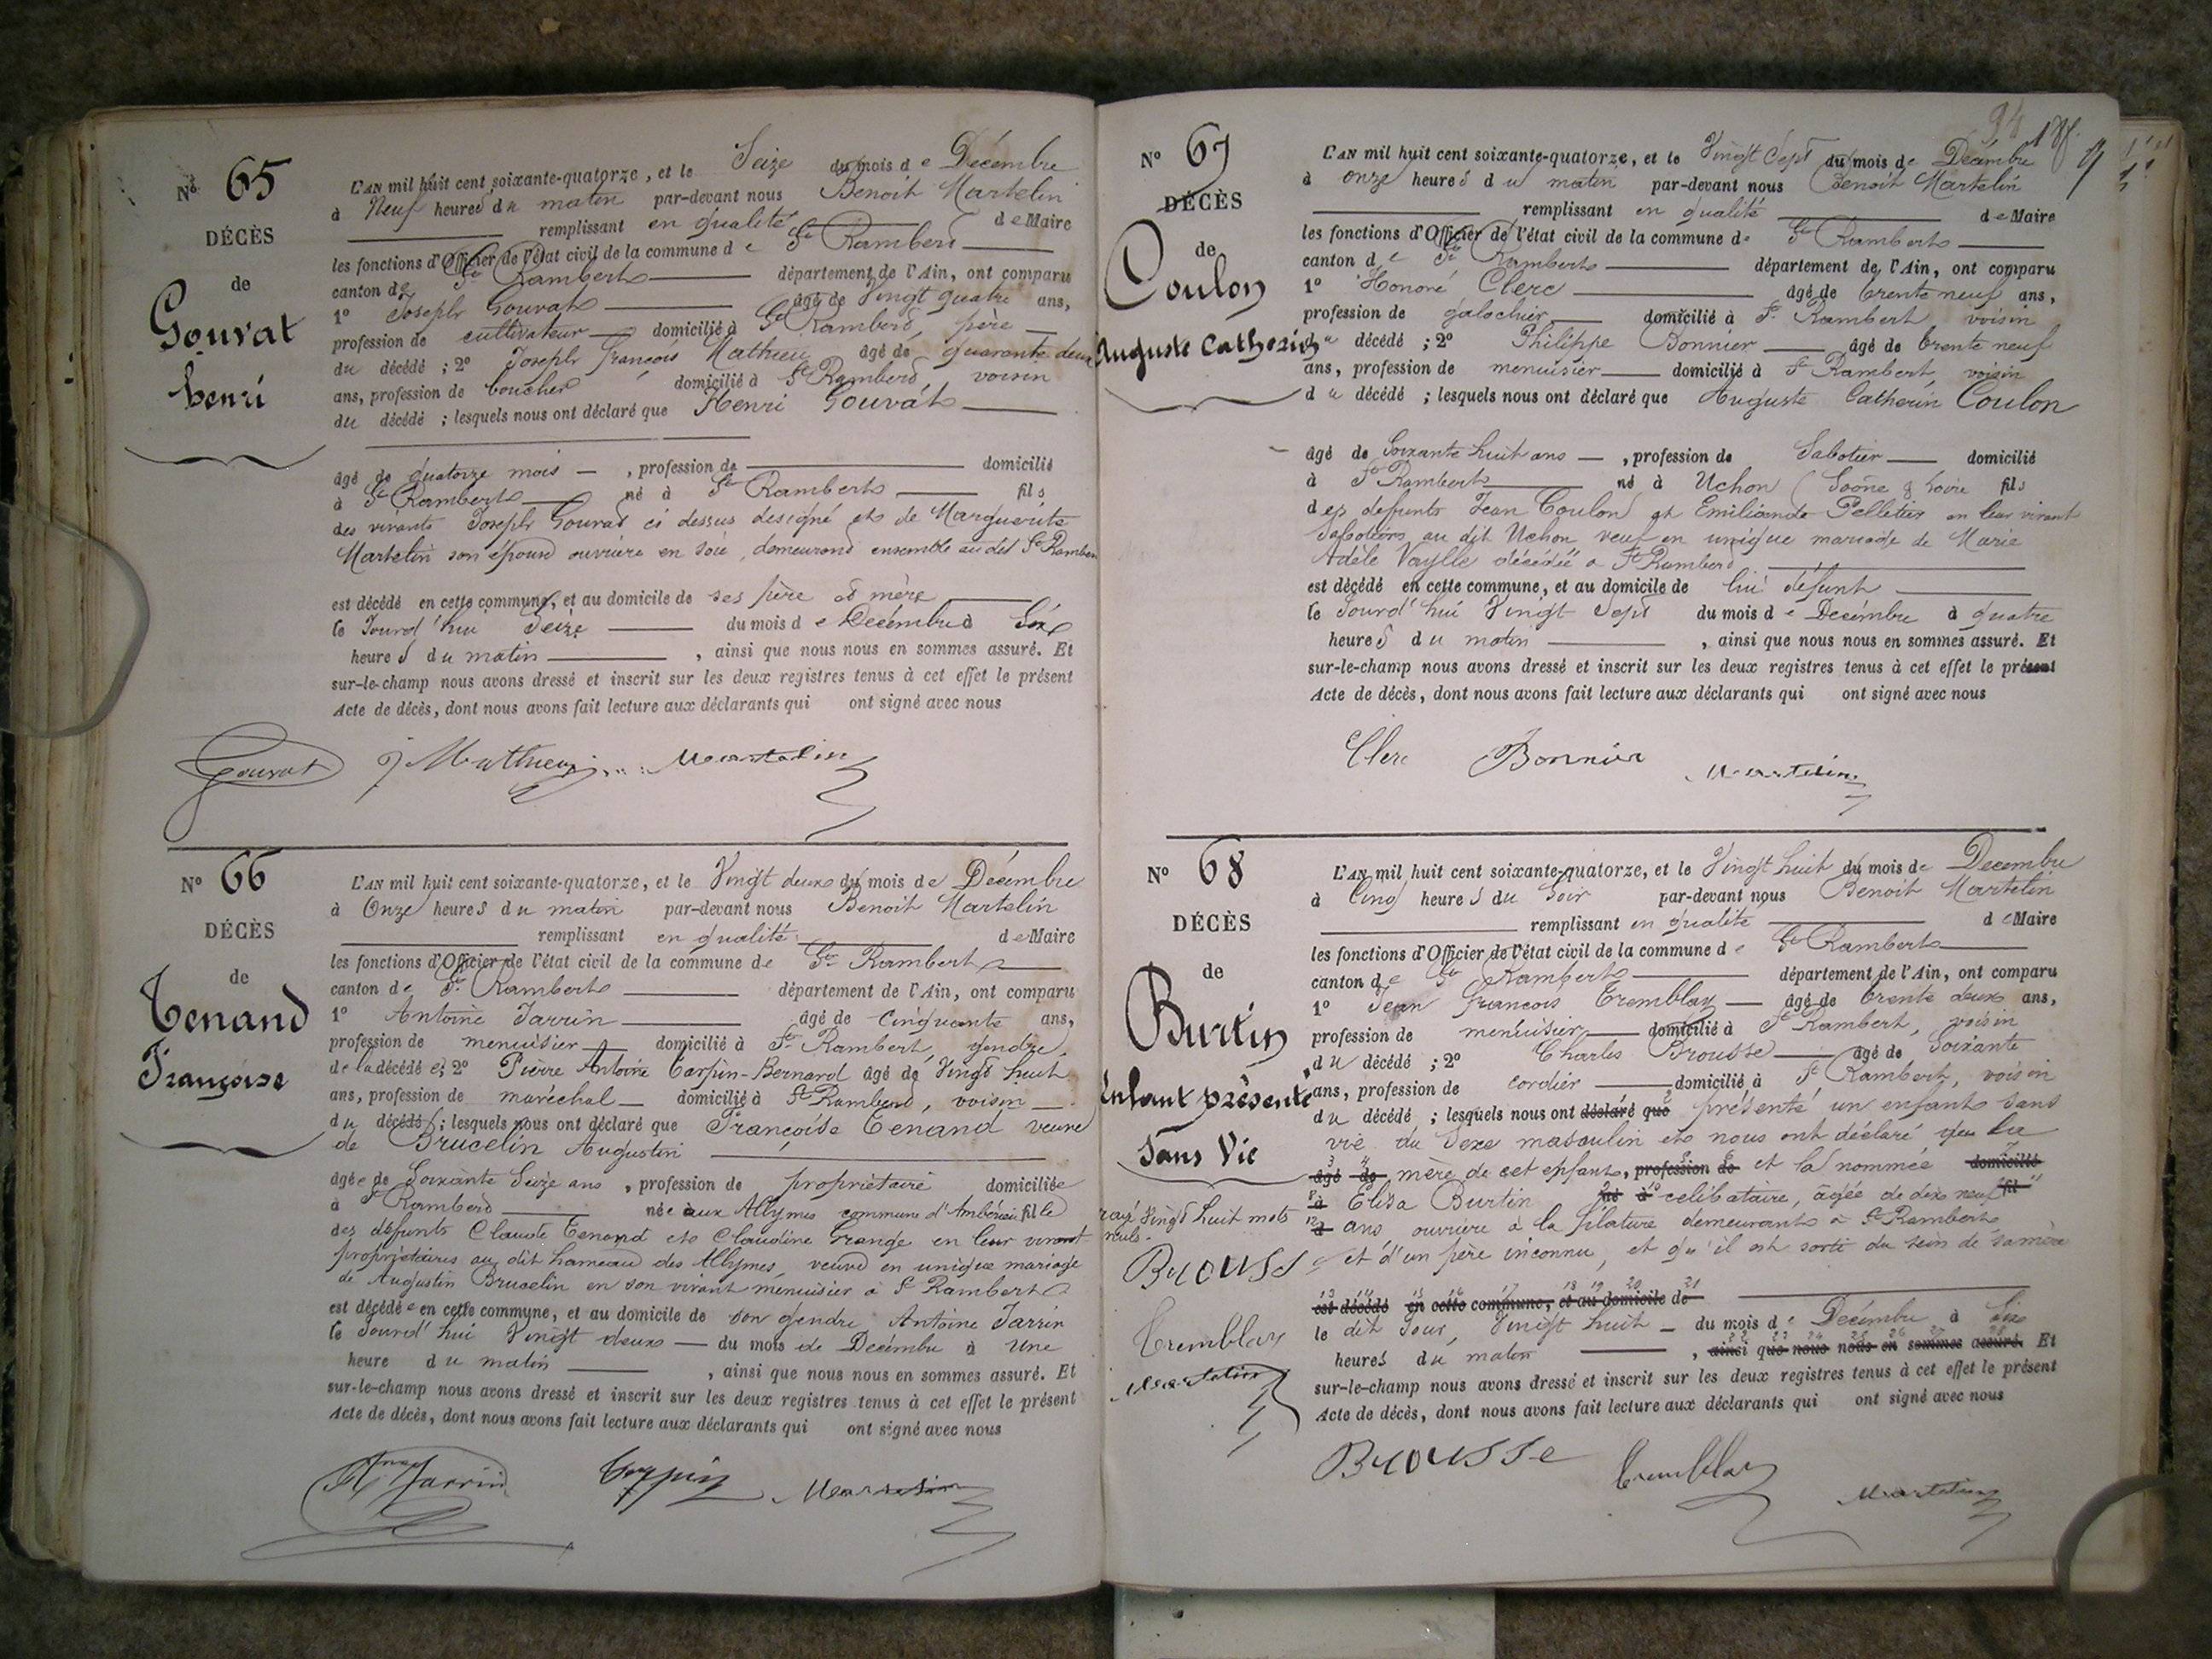 N° 65
DÉCÈS
de
Gouvat
henri
L'AN mil huit cent soixante-quatorze, et le Seize du mois de Décembre
à Neuf heures du matin par-devant nous Benoit Martelin
remplissant en qualité de Maire
les fonctions d'Officier de l'état civil de la commune de St Rambert
canton de St Rambert département de l'Ain, ont comparu
1° Joseph Gouvat âgé de Vingt quatre ans,
profession de cultivateur domicilié à St Rambert, père
du décédé ; 2° Joseph François Mathieu âgé de quarante deux
ans, profession de boucher domicilié à St Rambert, voisin
du décédé ; lesquels nous ont déclaré que Henri Gouvat
âgé de quatorze mois , profession de domicilié
à St Rambert né à St Rambert fils
des vivants Joseph Gouvat ci dessus désigné et de Marguerite
Martelin son épouse ouvrière en soie, demeurant ensemble au dit St Rambert
est décédé en cette commune, et au domicile de ses père et mère
le Jourd'hui Seize du mois de Décembre à Six
heures du matin , ainsi que nous nous en sommes assuré. Et
sur-le-champ nous avons dressé et inscrit sur les deux registres tenus à cet effet le présent
Acte de décès, dont nous avons fait lecture aux déclarants qui ont signé avec nous
Gouvat J Mathieu Martelin
N° 66
DÉCÈS
de
Tenand
Françoise
L'AN mil huit cent soixante-quatorze, et le Vingt deux du mois de Décembre
à Onze heures du matin par-devant nous Benoit Martelin
remplissant en qualité de Maire
les fonctions d'Officier de l'état civil de la commune de St Rambert
canton de St Rambert département de l'Ain, ont comparu
1° Antoine Jarrin âgé de Cinquante ans,
profession de menuisier domicilié à St Rambert, gendre
de la décédée; 2° Pierre Antoine Carpin-Bernard âgé de Vingt huit
ans, profession de maréchal domicilié à St Rambert, voisin
du décédé ; lesquels nous ont déclaré que Françoise Tenand veuve
de Brucelin Augustin
âgée de Soixante Seize ans , profession de propriétaire domiciliée
à St Rambert née aux Allymes commune d'Ambérieu fille
des défunts Claude Tenand et Claudine Grange en leur vivant
propriétaires au dit hameau des Allymes, veuve en unique mariage
de Augustin Brucelin en son vivant menuisier à St Rambert
est décédée en cette commune, et au domicile de son gendre Antoine Jarrin
le Jourd'hui Vingt deux du mois de Décembre à Une
heure du matin , ainsi que nous nous en sommes assuré. Et
sur-le-champ nous avons dressé et inscrit sur les deux registres tenus à cet effet le présent
Acte de décès, dont nous avons fait lecture aux déclarants qui ont signé avec nous
Jarrin Carpin Martelin
N° 67
DÉCÈS
de
Coulon
Auguste Catherin
L'AN mil huit cent soixante-quatorze, et le Vingt Sept du mois de Décembre
à onze heures du matin par-devant nous Benoit Martelin
remplissant en qualité de Maire
les fonctions d'Officier de l'état civil de la commune de St Rambert
canton de St Rambert département de l'Ain, ont comparu
1° Honoré Clerc âgé de trente neuf ans,
profession de galochier domicilié à St Rambert voisin
du décédé ; 2° Philippe Bonnier âgé de trente neuf
ans, profession de menuisier domicilié à St Rambert, voisin
du décédé ; lesquels nous ont déclaré que Auguste Catherin Coulon
âgé de Soixante huit ans , profession de Sabotier domicilié
à St Rambert né à Uchon (Saône & Loire fils
des défunts Jean Coulon et Emiliande Pelletier en leur vivant
Sabotiers au dit Uchon veuf en unique mariage de Marie
Adèle Vaylle décédée à St Rambert
est décédé en cette commune, et au domicile de lui défunt
le Jourd'hui Vingt Sept du mois de Décembre à quatre
heures du matin , ainsi que nous nous en sommes assuré. Et
sur-le-champ nous avons dressé et inscrit sur les deux registres tenus à cet effet le présent
Acte de décès, dont nous avons fait lecture aux déclarants qui ont signé avec nous
Clerc Bonnier Martelin
N° 68
DÉCÈS
de
Burtin
Enfant présenté
Sans Vie
rayé Vingt huit mots
nuls.
Brousse
Tremblay
Martelin
L'AN mil huit cent soixante-quatorze, et le Vingt huit du mois de Decembre
à Cinq heures du Soir par-devant nous Benoit Martelin
remplissant en qualité de Maire
les fonctions d'Officier de l'état civil de la commune de St Rambert
canton de St Rambert département de l'Ain, ont comparu
1° Jean François Tremblay âgé de trente deux ans,
profession de menuisier domicilié à St Rambert, voisin
du décédé ; 2° Charles Brousse âgé de Soixante
ans, profession de cordier domicilié à St Rambert, voisin
du décédé ; lesquels nous ont déclaré que présenté un enfant sans
vie du Sexe masculin et nous ont déclaré que la
âgé de mère de cet enfant, profession de et la nommée domicilié
à Elisa Burtin né à celibataire, âgée de dix neuf fil
d ans, ouvrière à la filature demeurant à St Rambert
et d'un père inconnu, et qu'il est sorti du sein de sa mère
est décédé en cette commune, et au domicile de
le dit Jour, Vingt huit du mois de Décembre à Six
heures du matin , ainsi que nous nous en sommes assuré. Et
sur-le-champ nous avons dressé et inscrit sur les deux registres tenus à cet effet le présent
Acte de décès, dont nous avons fait lecture aux déclarants qui ont signé avec nous
Brousse Tremblay Martelin